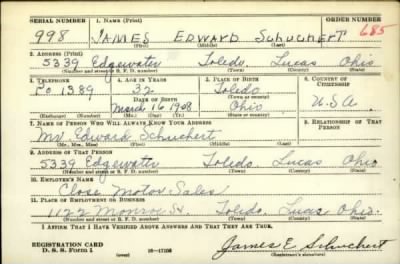 SERIAL NUMBER 1. NAME (Print) ORDER NUMBER
998 JAMES EDWARD SCHUCHERT 685
(First) (Middle) (Last)
2. ADDRESS (Print)
5339 Edgewater Toledo Lucas Ohio
(Number and street or R. F. D. number) (Town) (County) (State)
3. TELEPHONE 4. AGE IN YEARS 5. PLACE OF BIRTH 6. COUNTRY OF CITIZENSHIP
Po 1389 32 Toledo
DATE OF BIRTH (Town or county)
March 16 1908 Ohio U.S.A.
(Exchange) (Number) (Mo.) (Day) (Yr.) (State or country)
7. NAME OF PERSON WHO WILL ALWAYS KNOW YOUR ADDRESS 8. RELATIONSHIP OF THAT PERSON
Mr Edward Schuchert
(Mr., Mrs., Miss) (First) (Middle) (Last)
9. ADDRESS OF THAT PERSON
5339 Edgewater Toledo Lucas Ohio
(Number and street or R. F. D. number) (Town) (County) (State)
10. EMPLOYER'S NAME
Close Motor Sales
11. PLACE OF EMPLOYMENT OR BUSINESS
1122 Monroe St. Toledo Lucas Ohio.
(Number and street or R. F. D. number) (Town) (County) (State)
I AFFIRM THAT I HAVE VERIFIED ABOVE ANSWERS AND THAT THEY ARE TRUE.
REGISTRATION CARD
D. S. S. Form 1 16—17105 James E Schuchert
(Registrant's signature)